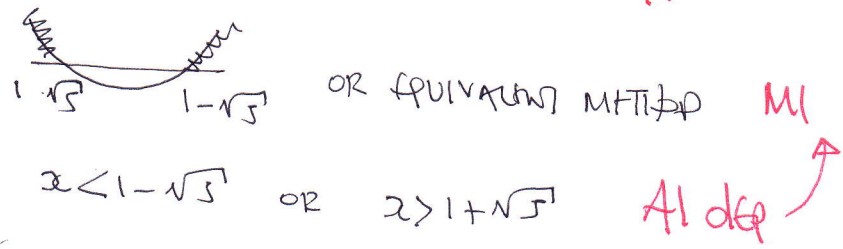 1 √5 1-√5 OR EQUIVALENT METHOD M1
x<1-√5 OR x>1+√5 A1 dep